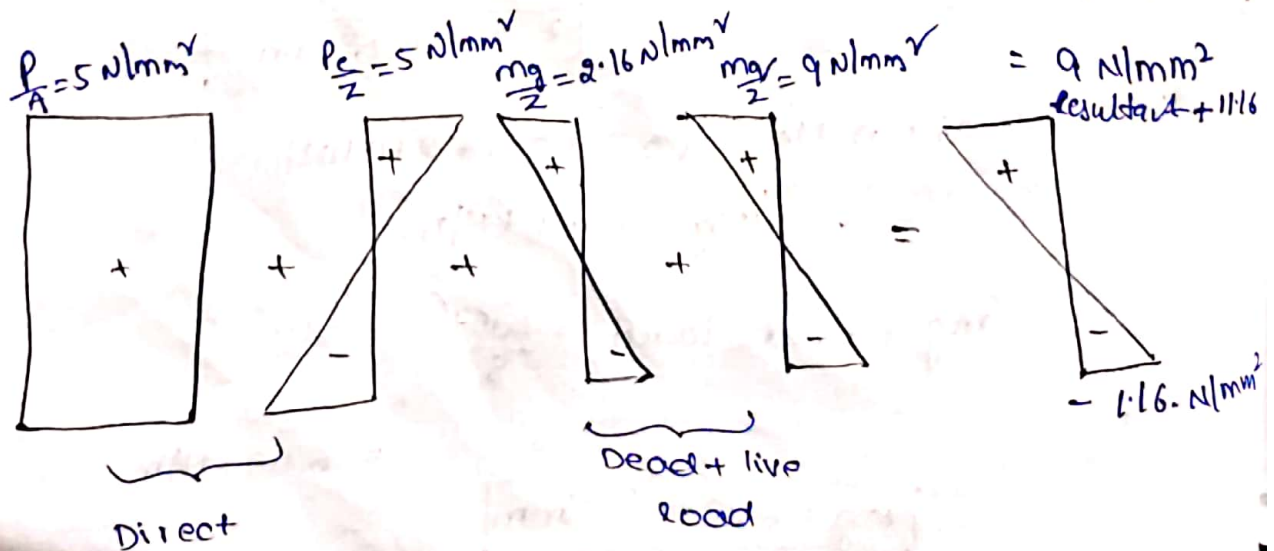 P/A = 5 N/mm²
Pe/Z = 5 N/mm²
mg/Z = 2.16 N/mm²
mq/Z = 9 N/mm²
= 9 N/mm²
resultant + 11.16
+
+
+
-
+
+
-
+
+
-
=
+
-
- 1.16. N/mm²
Direct
Dead + live
load